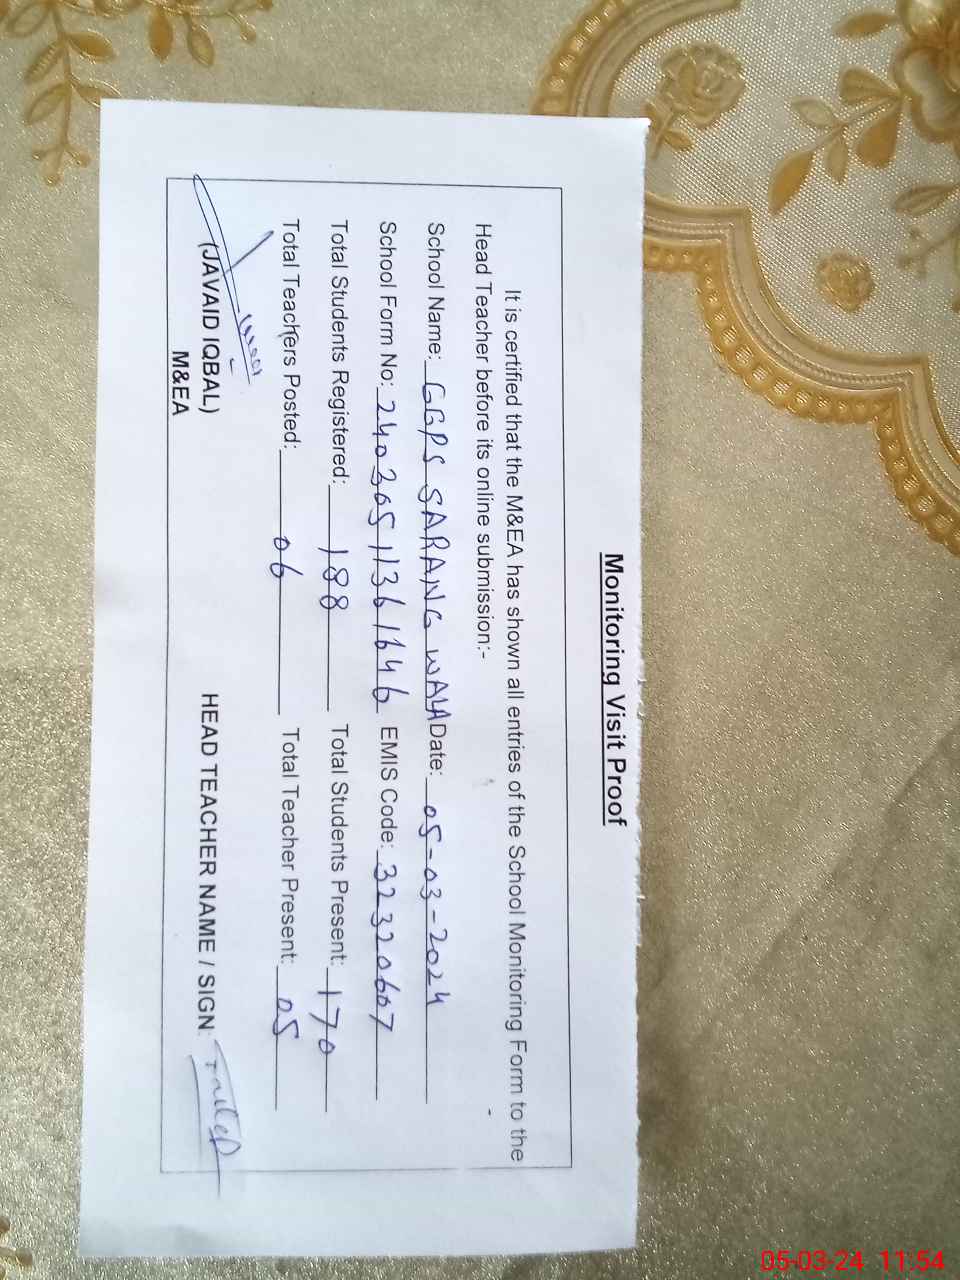 Monitoring Visit Proof
It is certified that the M&EA has shown all entries of the School Monitoring Form to the
Head Teacher before its online submission:-
School Name: GGPS SARANG WALA Date: 05-03-2024
School Form No: 24030511361646 EMIS Code: 32320607
Total Students Registered: 188 Total Students Present: 170
Total Teachers Posted: 06 Total Teacher Present: 05
(JAVAID IQBAL) HEAD TEACHER NAME / SIGN:
M&EA
05-03-24 11:54